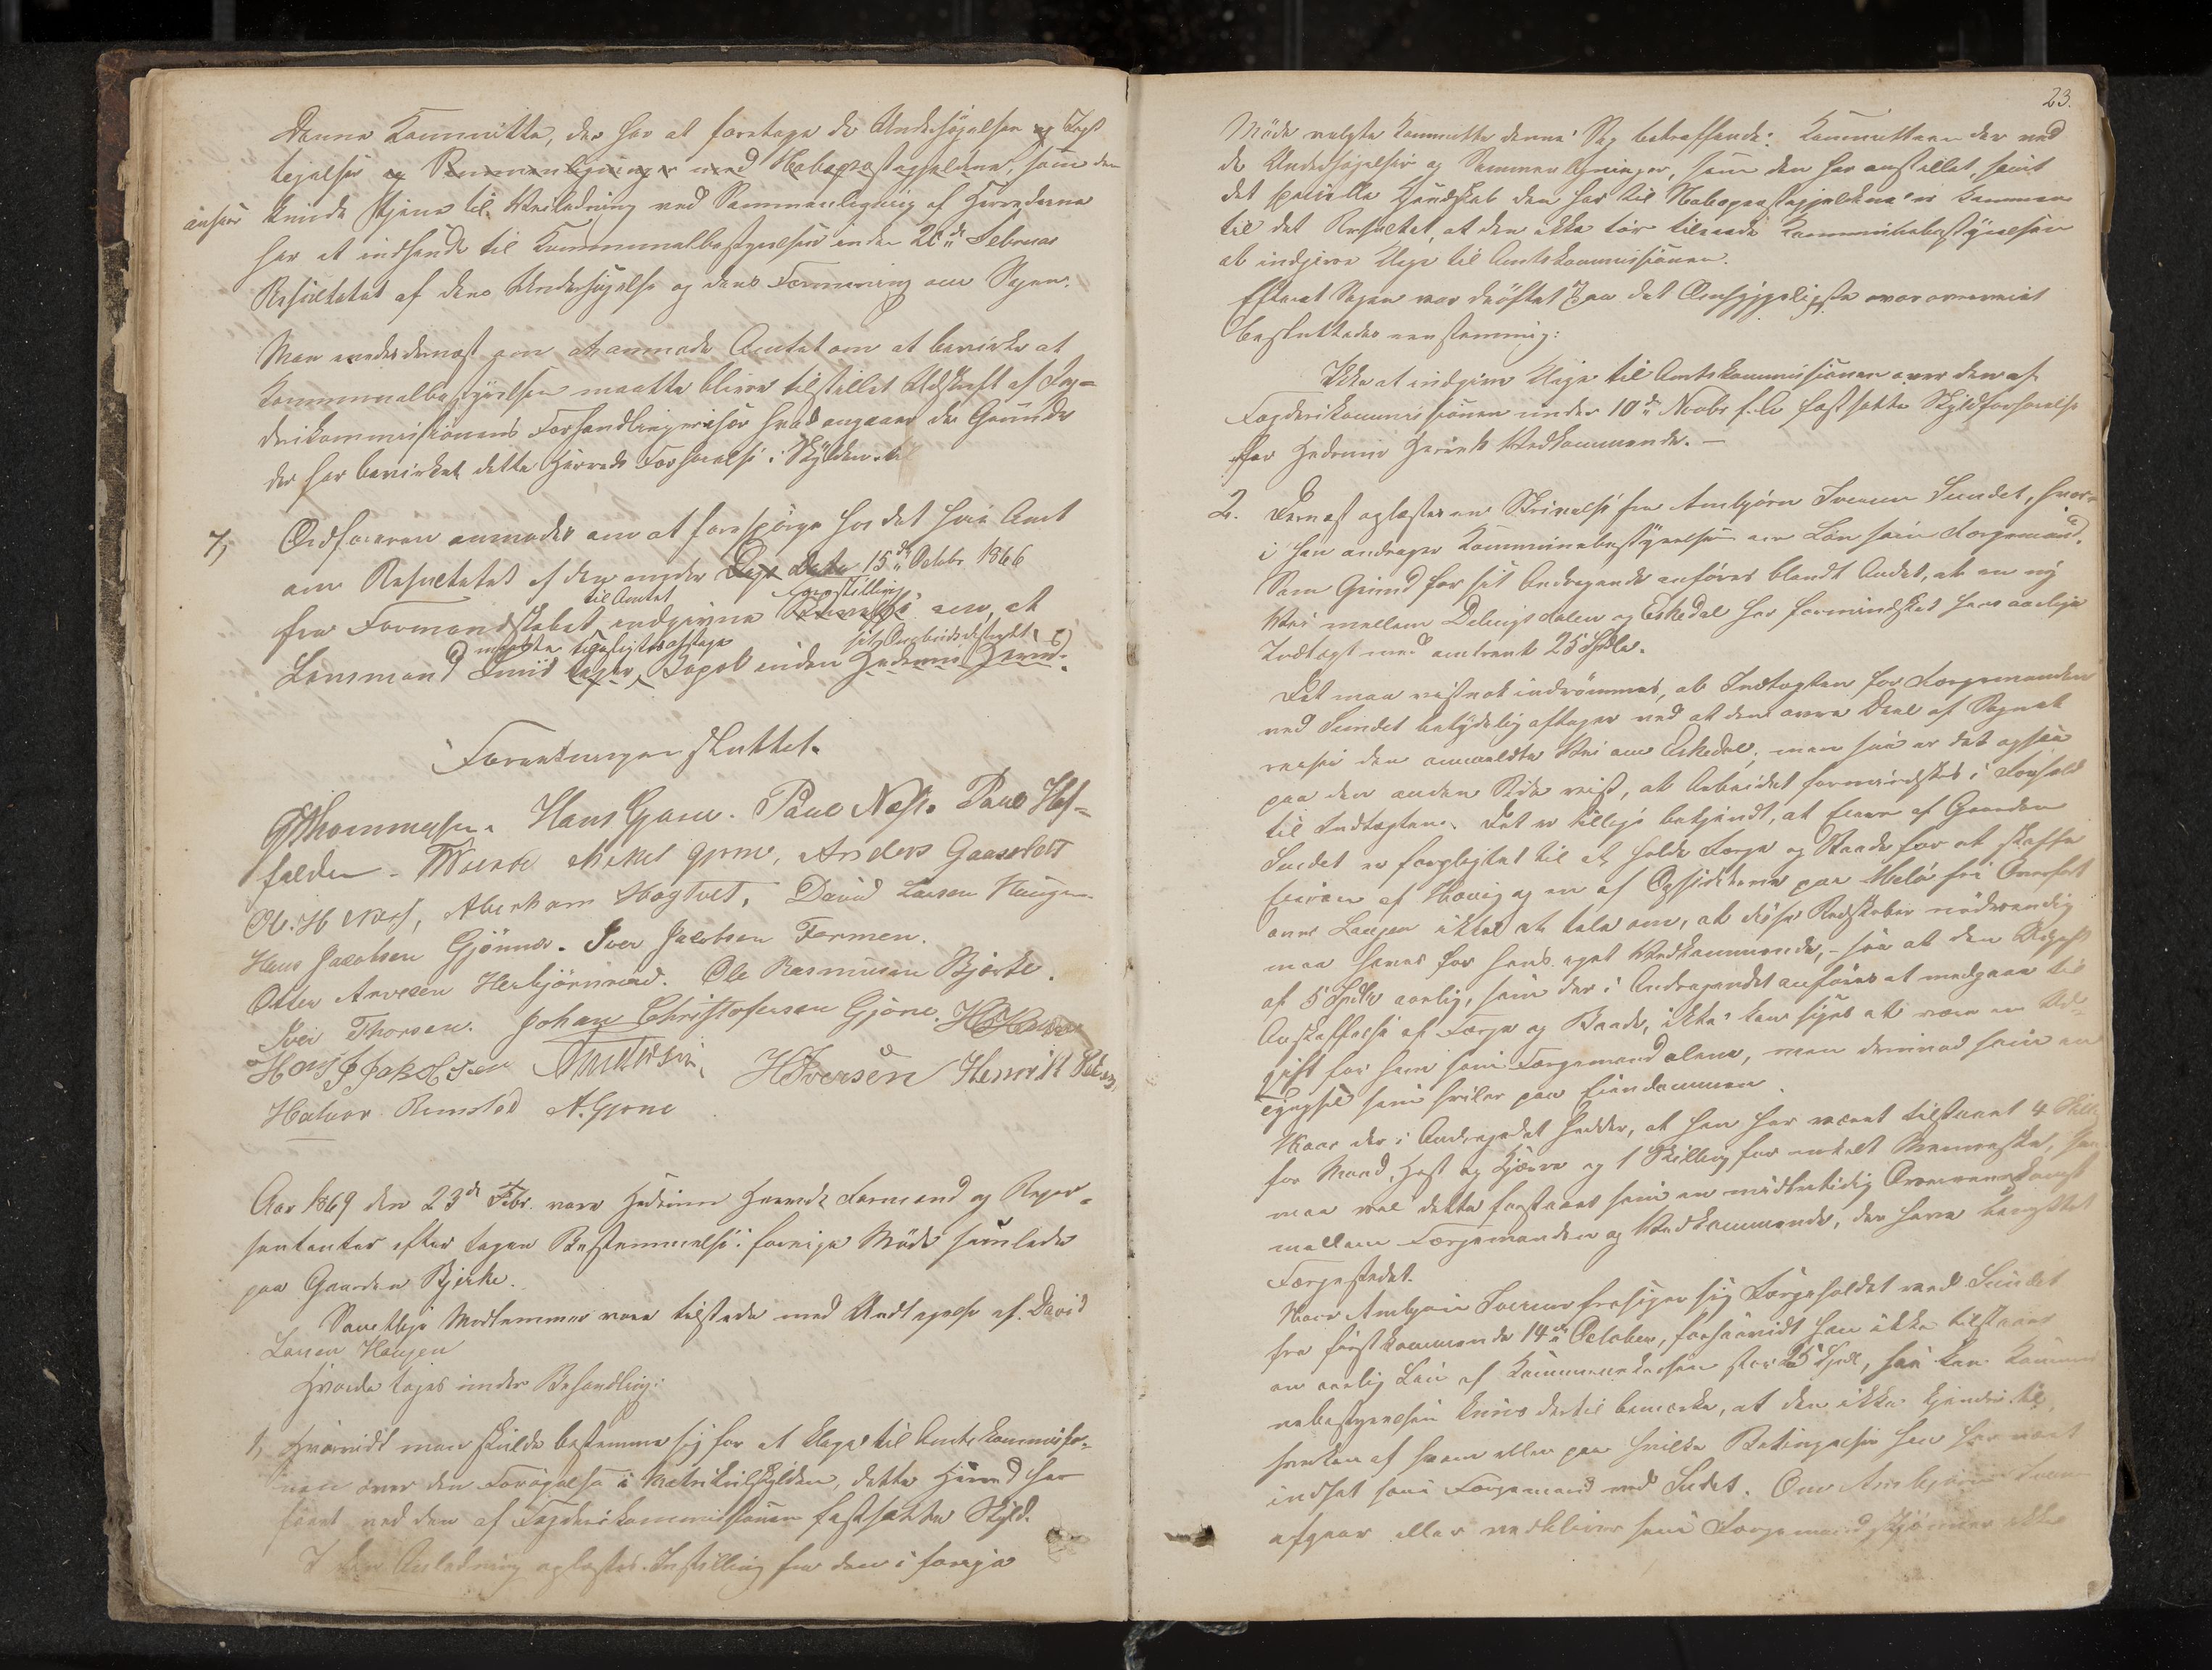 Denne Kommitte, der har at foretage de Undersøgelser og Iagt
tagelser og Sammenligninger med Nabopræstegjeldene, som den
anser kunde tjene til Veiledning ved Sammenligning af Herrederne
har at indsende til Kommunalbestyrelsen inden 20de Februar
Resultatet af dens Undersøgelse og dens Formening om Sagen.
Man enedes dernæst om at anmode Amtet om at bevirke at
Kommunalbestyrelsen maatte blive tilstillet Udskrift af Fog=
derikommissionens Forhandlinger hvad angaaer de Grunde
der har bevirket dette Herreds Forhøielse i Skylden.
7, Ordføreren anmodes om at forespørge hos det høie Amt
om Resultatet af den under Dags Dato 15de Octobr 1866
til Amtet Forestilling
fra Formandskabet indgivne om, at
maatte
Lensmand Smit tage Bopæl inden Hedrums Herred.
Forretningen sluttet.
Thommesen. Hans Gjone. Paul Næss. Paul Hof=
falden. Mikkel Gjone, Anders Gaasholt
Ol. H Næss, Abraham Hagtvet, David Larsen Haugen
Hans Jacobsen Gjønnes. Iver Jacobsen Farmen.
Otter Arvesen Herbjørnrød. Ole Rasmusen Bjerke.
Iver Thorsen. Johan Christofersen Gjone.
Hans J Jakobsen HIversen Henrik
Halvor Rimstad A. Gjone
Aar 1869 den 23de Febr. vare Hedrum Herreds Formænd og Repræ=
sentanter efter tagen Bestemmelse i forrige Møde samlede
paa Gaarden Bjerke.
Samtlige Medlemmer vare tilstede med Undtagelse af David
Larsen Haugen
Hvorda toges under Behandling:
1, Hvorvidt man skulde bestemme sig for at klage til Amtskommissio=
nen over den Forøgelse i Matrikulskylden, dette Herred har
faaet ved den af Fogderikommissionen fastsatte Skyld.
I den Anledning oplæstes Indstilling fra den i forrige
23.
Møde valgte Kommitte denne Sag betræffende: Kommitteen der ved
de Undersøgelser og Sammenligninger, som den har anstillet, samt
det specielle Kjendskab den har til Nabopræstegjeldene er kommen
til det Resultat, at den ikke tør tilraade Kommunebestyrelsen
at indgive Klage til Amtskommissionen.
Efterat Sagen var drøftet paa det Omhyggeligste
besluttedes eenstemmig:
Ikke at indgive Klage til Amtskommissionen over den af
Fogderikommissionen under 10de Novbr f. A. fastsatte Skyldforhøielse
for Hedrum Herreds Vedkommende. —
2. Dernæst oplæstes en Skrivelse fra Ambjørn Iversen Sundet, hvor=
i han andrager Kommunebestyrelsen om Løn som Færgemand.
Som Grund for sit Andragende anføres blandt Andet, at en ny
Vei mellem Delingsdalen og Eskedal har formindsket hans aarlige
Indtægt med omtrent 25 Spdlr.
Det maa vistnok indrømmes, at Indtægten for Færgemanden
ved Sundet betydelig aftager ved at den øvre Deel af Sognet
reiser den ommeldte Vei om Eskedal; men saa er det ogsaa
paa den anden Side vist, at Arbeidet formindskes i Forhold
til Indtægten. Det er tillige bekjendt, at Eieren af Gaarden
Sundet er forpligtet til at holde Færge og Baade for at skaffe
Eieren af og en af Opsidderne paa Melø fri Overfart
over Laagen ikke at tale om, at disse Redskaber nødvendig
maa haves for hans eget Vedkommende, – saa at den Udgift
af 5 Spdlr aarlig, som der i Andragendet anføres at medgaae til
Anskaffelse af Færge og Baade, ikke kan siges at være en Ud=
gift for ham som Færgemand alene, men derimod som en
som hviler paa Eiendommen.
Naar der i Andragendet hedder, at han har været tilstaaet 4 Skill
for Mand, Hest og Kjærre og 1 Skilling for enkelt Menneske, saa
maa vel dette forstaaes som en midlertidig Overeenskomst
mellem Færgemanden og Vedkommende, der have benyttet
Færgestedet.
Naar Ambjørn Iversen frasiger sig Færgeholdet ved Sundet
fra førstkommende 14de October, forsaavidt han ikke tilstaaes
en aarlig Løn af Kommunekassen stor 25 Spdl, saa kan Kommu
nebestyrelsen kuns dertil bemærke, at den ikke kjender til,
hverken af hvem eller paa hvilke Betingelser han har været
indsat som Færgemand ved Sundet. Om Ambjørn Iversen
afgaar eller vedbliver som Færgemand skjønner ikke